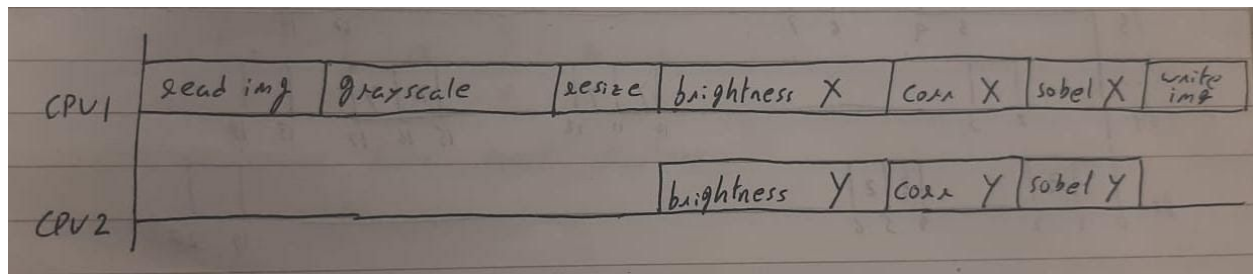 CPU1 read img grayscale resize brightness X corr X sobel X write img
CPU2 brightness Y corr Y sobel Y